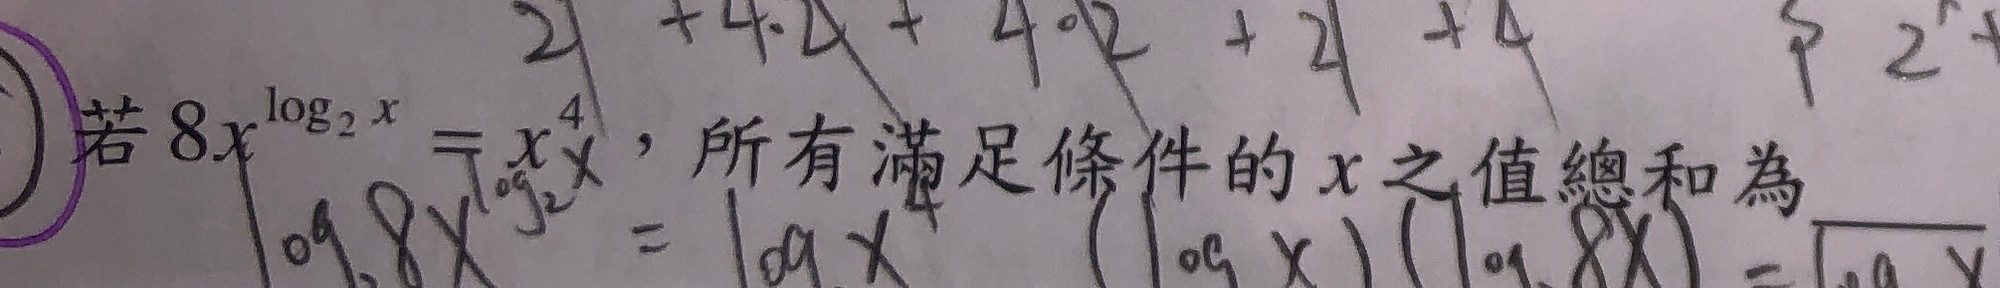 2 + 4·2 + 4·2 + 2 + 4 2
若 8x^{log₂ x} = x⁴，所有滿足條件的 x 之值總和為
log 8x^{log₂ x} = log x⁴ (log x)(log 8x) = log x